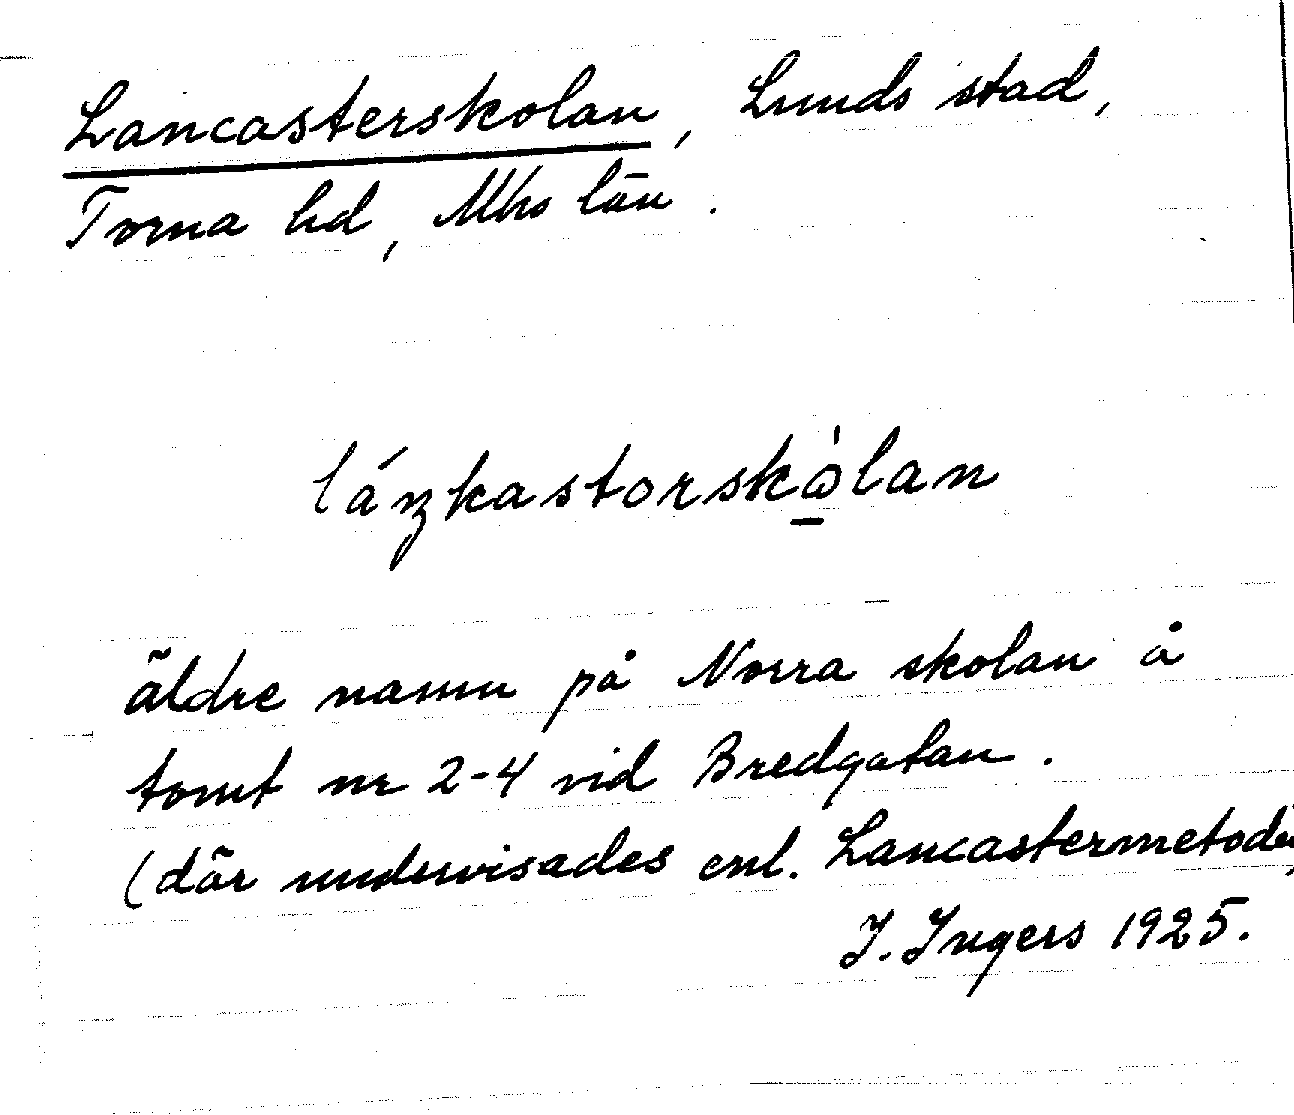 Lancasterskolan, Lunds stad,
Torna hd, Mhs län.
láŋkastorskòlan
äldre namn på Norra skolan å
tomt nr 2-4 vid Bredgatan.
(där undervisades enl. Lancastermetoden
I. Ingers 1925.